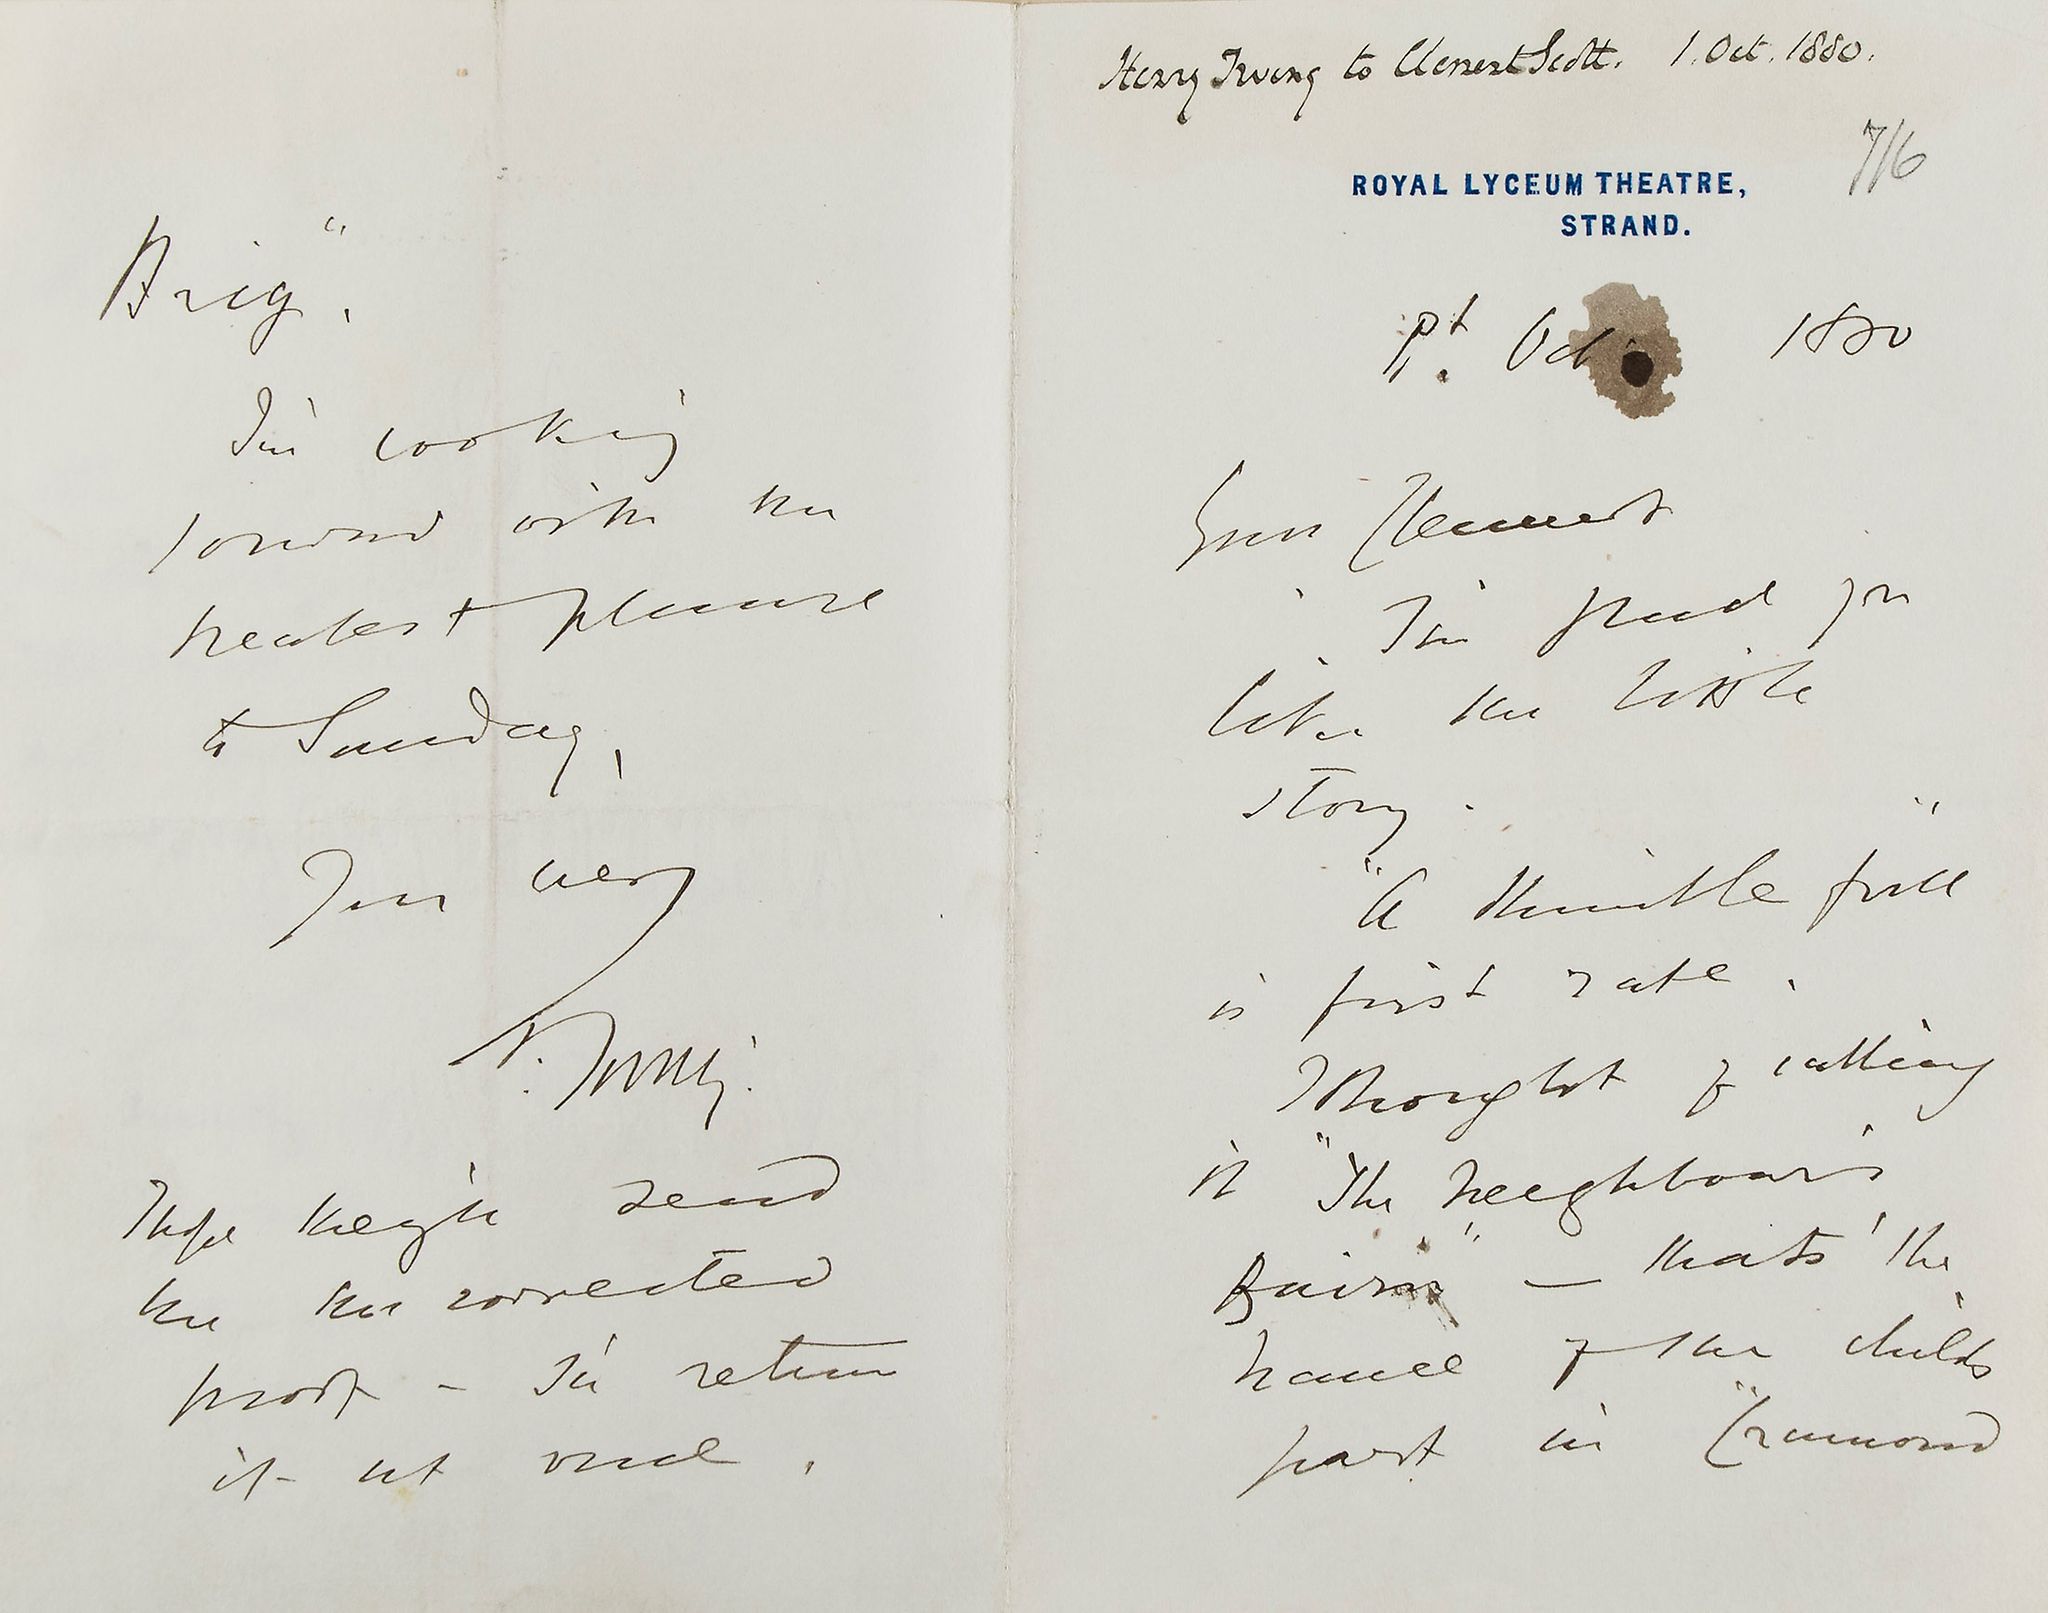 Henry Irving to Clement Scott. 1. Oct. 1880.
7/6
ROYAL LYCEUM THEATRE,
STRAND.
1st. Oct. 1880
Clement
I'm glad you
like the little
story.
"A Humble " 
is first rate.
I thought of calling
it "The Neighbour's
Bairn" — that's the
name of the childs
part in "Cramond
Brig".
I'm looking
forward with the
greatest pleasure
to Sunday,
Your very
H. Irving.
I hope they'll send
me the corrected
proof - I'll return
it at once.